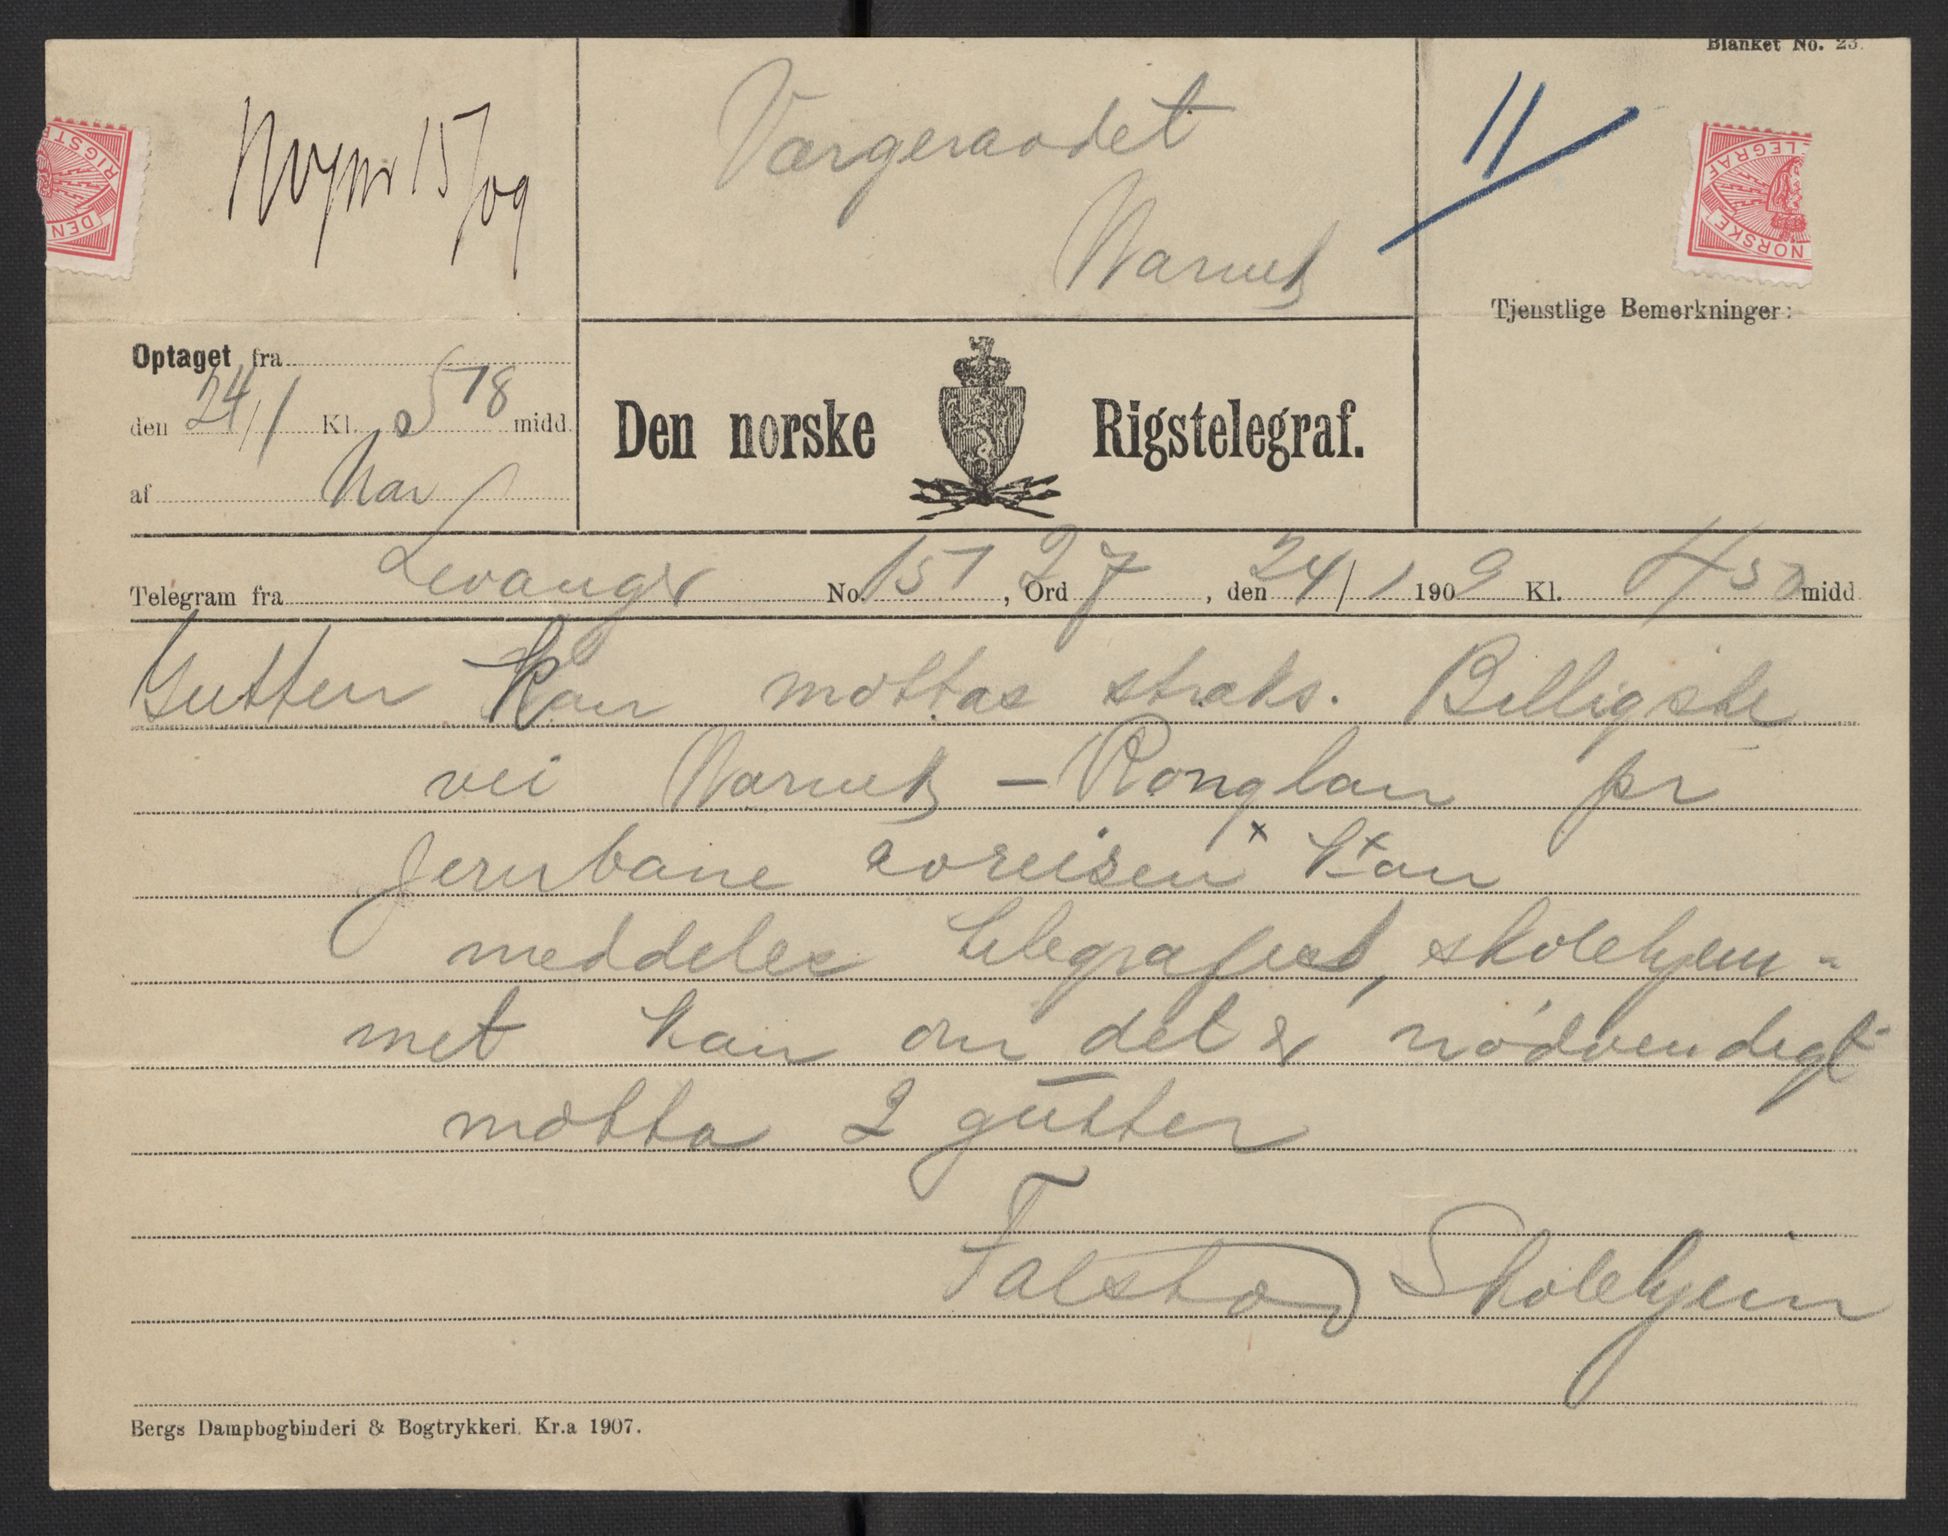 Blanket No. 23.
15/09
Værgeraadet
Namsos
11
DEN NORSKE RIGSTELEGRAF
Tjenstlige Bemerkninger:
Optaget fra
den 24/1 Kl. 5 18 midd.
af Nar
Den norske Rigstelegraf.
Telegram fra Levanger No. 151, Ord 27, den 24/1 1909 Kl. 4 50 midd
Gutten kan mottas straks. Billigste
vei Namsos – Ronglan pr
Jernbane avreisen kan
meddeles telegrafisk, skolehjem-
met kan om det er nødvendigt
motta 2 gutter
Falstad Skolehjem
Bergs Dampbogbinderi & Bogtrykkeri. Kr.a 1907.